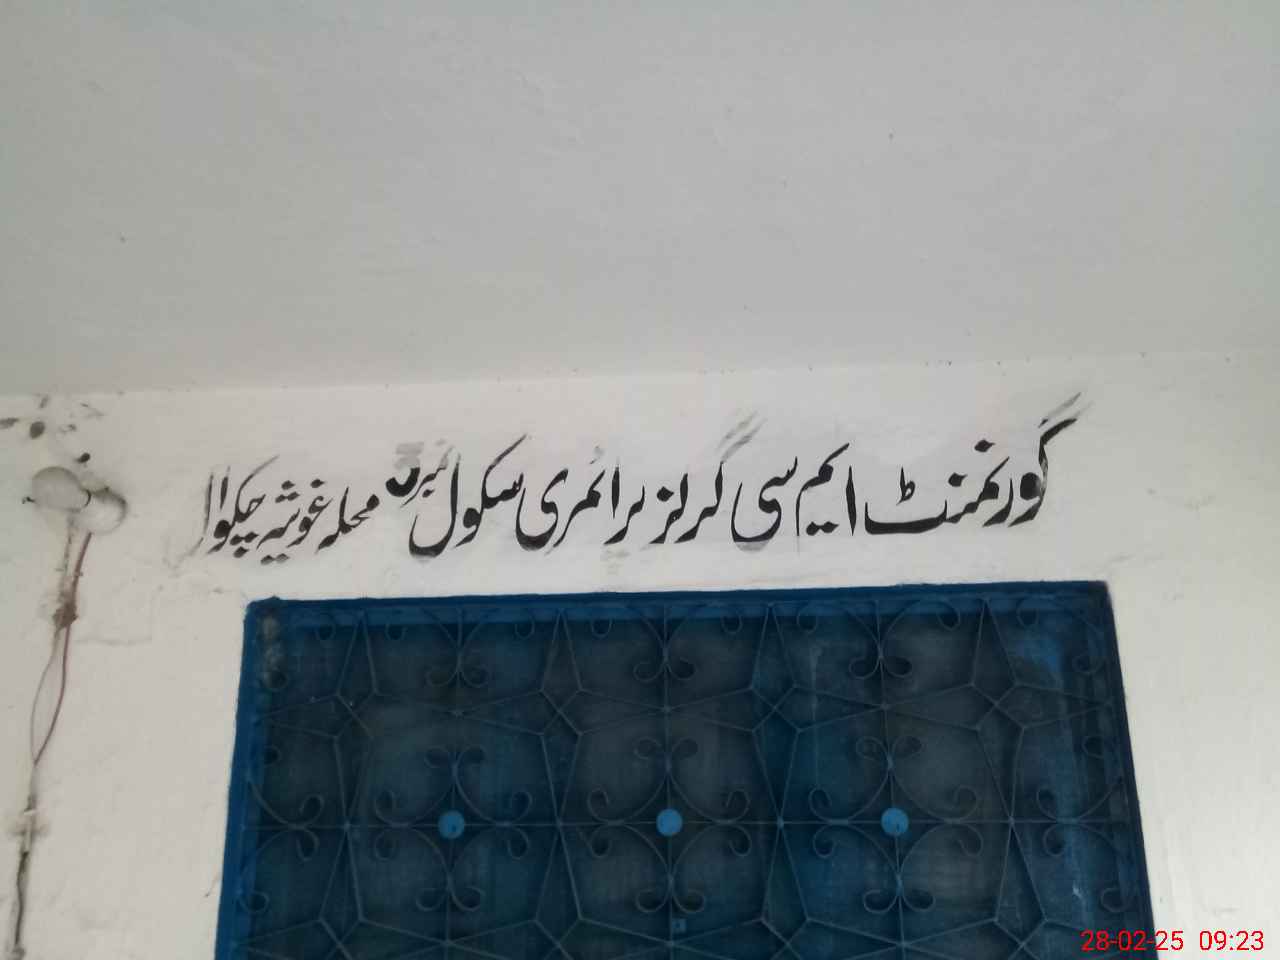 گورنمنٹ ایم سی گرلز پرائمری سکول نمبر محلہ غوثیہ چکوال
28-02-25 09:23